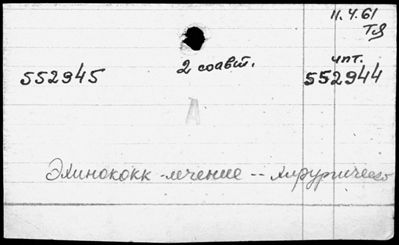 11.4.61
ТЯ
чпт.
552945 2 соавт. 552944
А
Эхинококк - лечение -- хирургическо